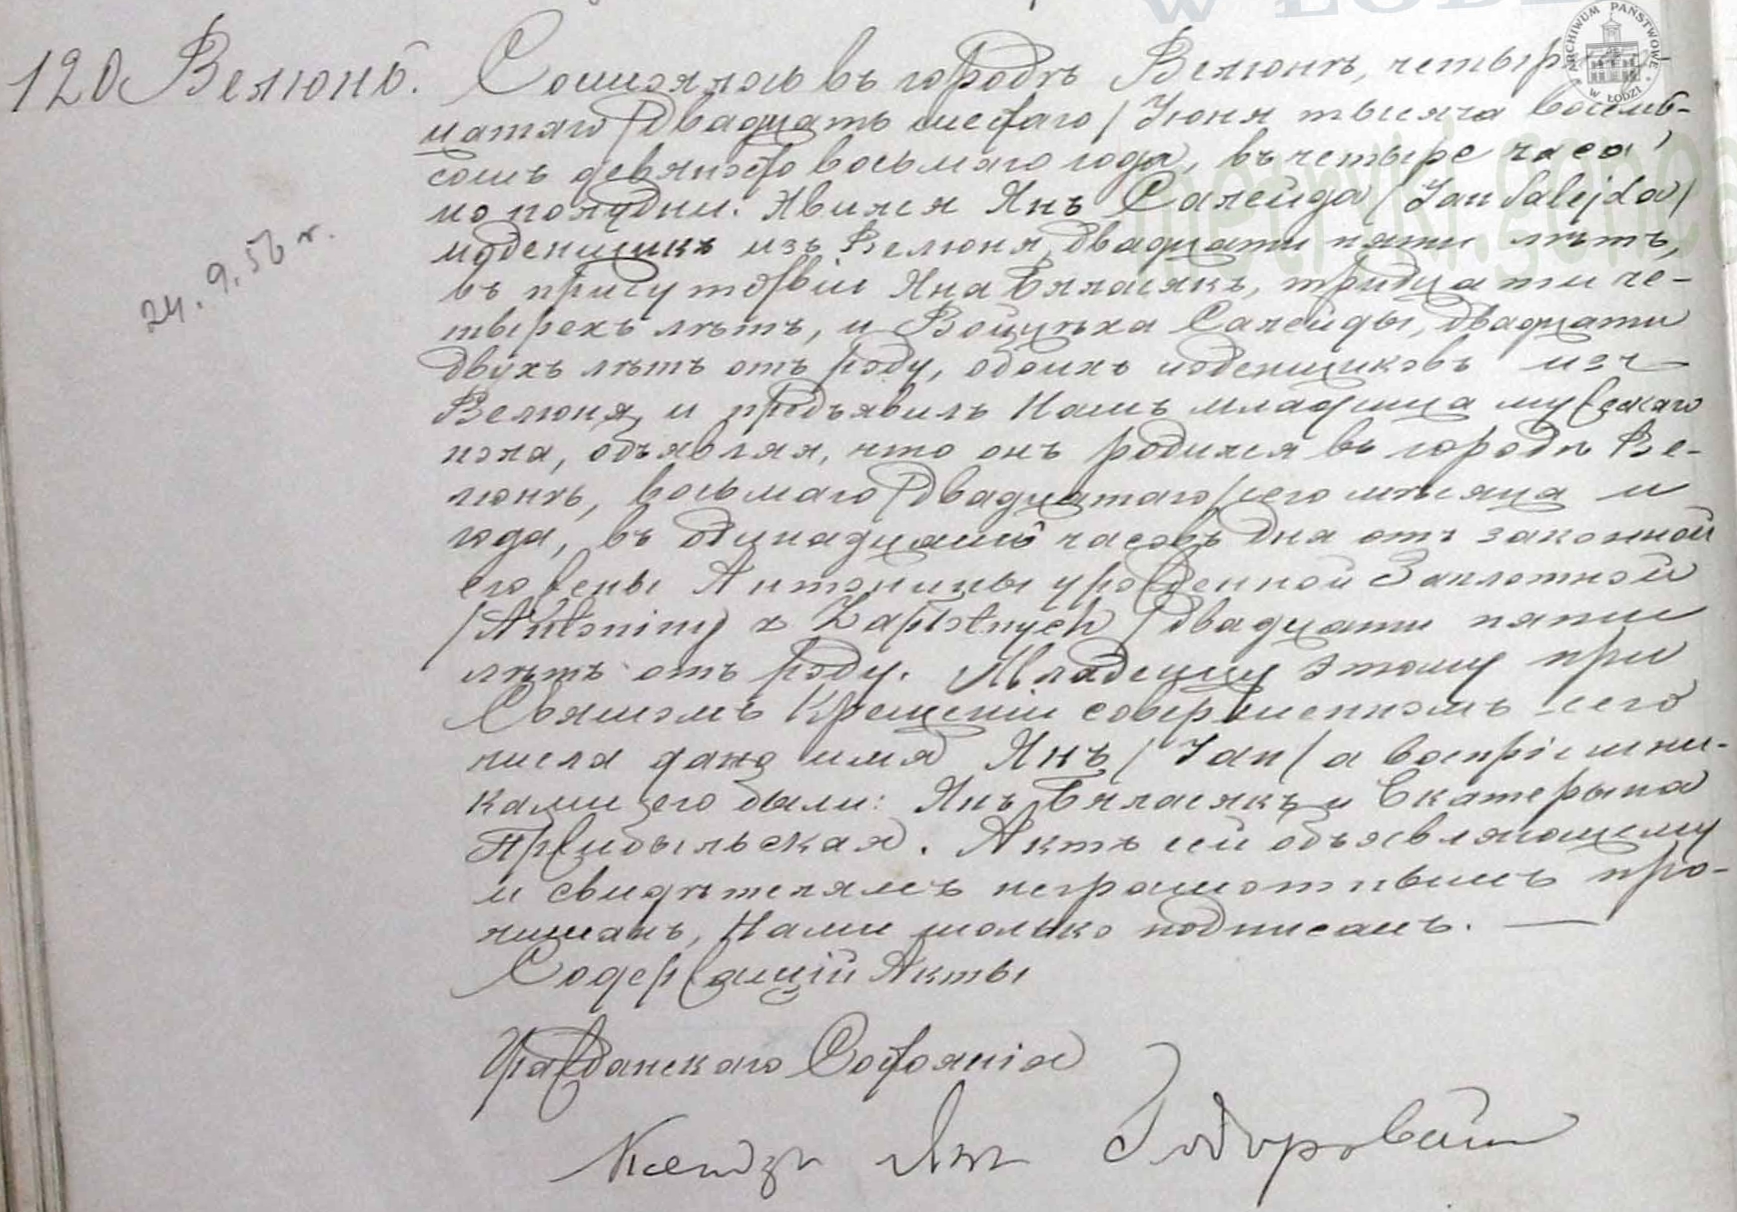 120 Велюнь. Состоялось въ городѣ Велюнѣ, четыр-
натаго /двадцать шестаго/ Іюня тысяча восемь-
сотъ девяносто восьмаго года, въ четыре часа
по полудни. Явился Янъ Салейда /Jan Salejda/
поденщикъ изъ Велюня, двадцати пяти лѣтъ,
въ присутствіи Яна Бяласякъ, тридцати че-
тырехъ лѣтъ, и Войцѣха Салейды, двадцати
двухъ лѣтъ отъ роду, обоихъ поденщиковъ изъ
Велюня, и предъявилъ Намъ младенца мужскаго
пола, объявляя, что онъ родился въ городѣ Ве-
люнѣ, восьмаго /двадцатаго/ сего мѣсяца и
года, въ одинадцать часовъ дня отъ законной
его жены Антонины урожденной Заплотной
/Antoniny z Zapłotnych/ двадцати пяти
лѣтъ отъ роду. Младенцу этому при
Святомъ Крещеніи совершенномъ сего
числа дано имя Янъ /Jan/ а воспріемни-
ками его были: Янъ Бяласякъ и Екатерына
Пржибыльская. Актъ сей объявляющему
и свидѣтелямъ неграмотнымъ про-
читанъ, Нами только подписанъ. —
Содержащій Акты
Гражданскаго Состоянія
Ксендзъ Янъ
24. 9. 56 r.
W ŁODZI
ARCHIWUM PAŃSTWOWE
W ŁODZI
metryki.genea